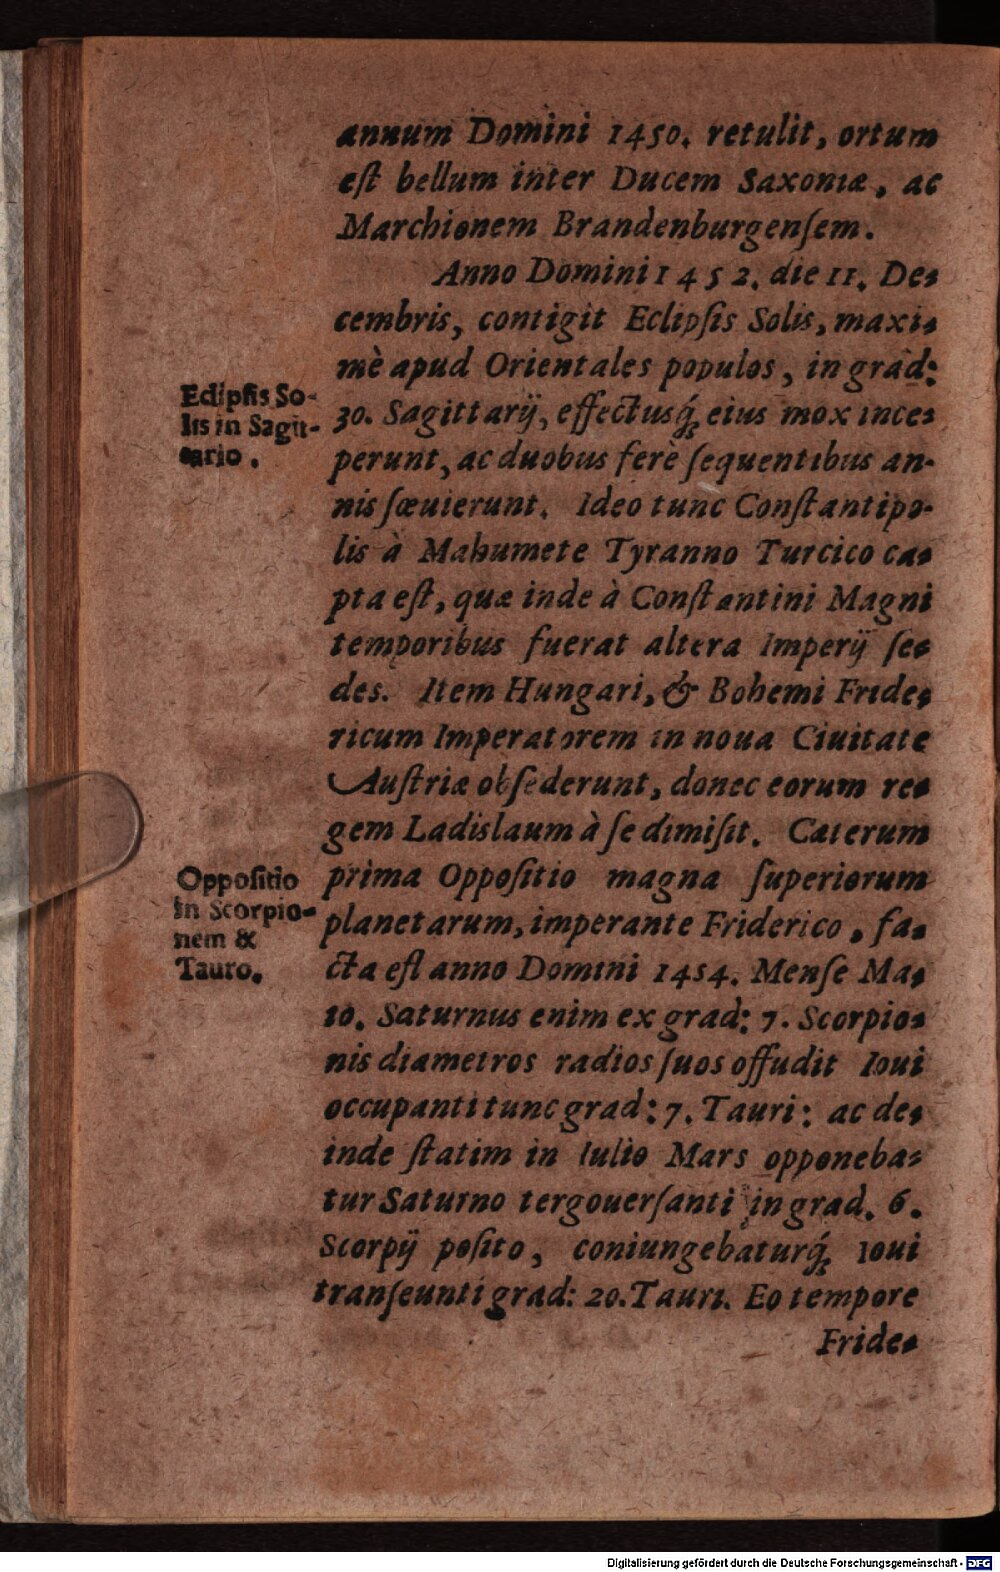 annum Domini 1450. retulit, ortum
eſt bellum inter Ducem Saxoniæ, ac
Marchionem Brandenburgenſem.
Anno Domini 1452. die 11. De-
cembris, contigit Eclipſis Solis, maxi-
mè apud Orientales populos, in grad:
30. Sagittarij, effectusq́; eius mox ince-
perunt, ac duobus ferè ſequentibus an-
nis ſœuierunt. Ideo tunc Conſtantipo-
lis à Mahumete Tyranno Turcico ca-
pta eſt, quæ inde à Conſtantini Magni
temporibus fuerat altera Imperij ſe-
des. Item Hungari, & Bohemi Fride-
ricum Imperatorem in noua Ciuitate
Auſtriæ obſederunt, donec eorum re-
gem Ladislaum à ſe dimiſit. Cæterum
prima Oppoſitio magna ſuperiorum
planetarum, imperante Friderico, fa-
cta eſt anno Domini 1454. Menſe Ma-
io. Saturnus enim ex grad: 7. Scorpio-
nis diametros radios ſuos offudit Ioui
occupanti tunc grad: 7. Tauri: ac de-
inde ſtatim in Iulio Mars opponeba-
tur Saturno tergouerſanti in grad. 6.
Scorpij poſito, coniungebaturq́; Ioui
tranſeunti grad: 20. Tauri. Eo tempore
Fride-
Eclipſis So-
lis in Sagit-
tario.
Oppoſitio
in Scorpio-
nem &
Tauro.
Digitalisierung gefördert durch die Deutsche Forschungsgemeinschaft - DFG